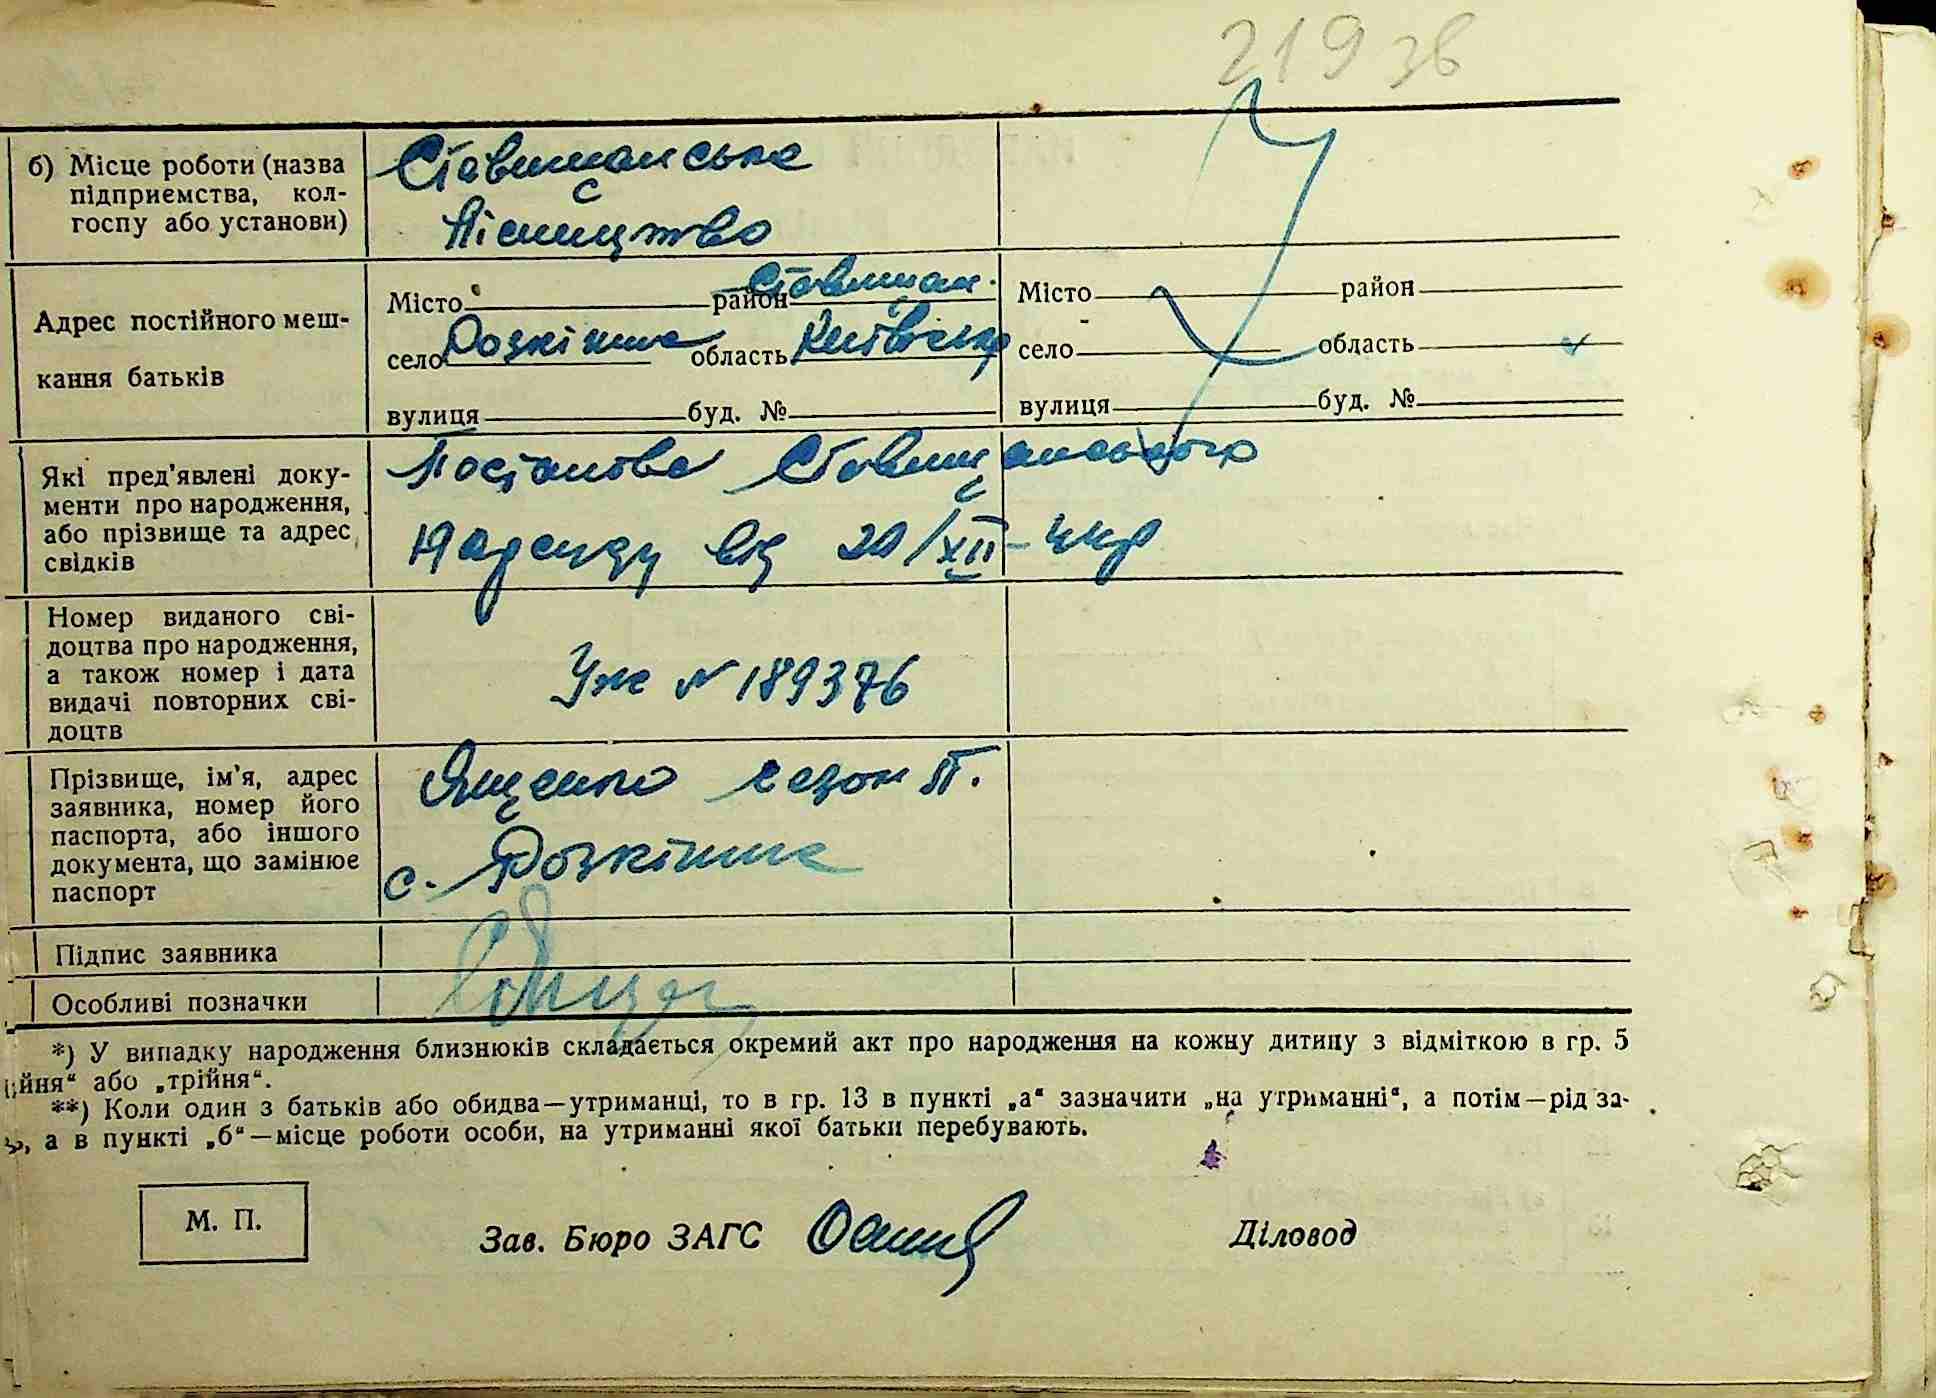 219 зв
б) Місце роботи (назва
підприємства, кол-
госпу або установи)
Ставищанське
Лісництво
Адрес постійного меш-
кання батьків
Місто район Ставищан.
село Розкішне область Київська
вулиця буд. №
Місто район
село область
вулиця буд. №
Які пред'явлені доку-
менти про народження,
або прізвище та адрес
свідків
Постанова Ставищанського
Нарсуду від 20/XII-44р
Номер виданого сві-
доцтва про народження,
а також номер і дата
видачі повторних сві-
доцтв
Уж № 189376
Прізвище, ім'я, адрес
заявника, номер його
паспорта, або іншого
документа, що замінює
паспорт
Ященко
с. Розкішне
Підпис заявника
Особливі позначки
*) У випадку народження близнюків складається окремий акт про народження на кожну дитину з відміткою в гр. 5
ійня“ або „трійня“.
**) Коли один з батьків або обидва—утриманці, то в гр. 13 в пункті „а“ зазначити „на утриманні“, а потім—рід за-
, а в пункті „б“—місце роботи особи, на утриманні якої батьки перебувають.
М. П.
Зав. Бюро ЗАГС
Діловод